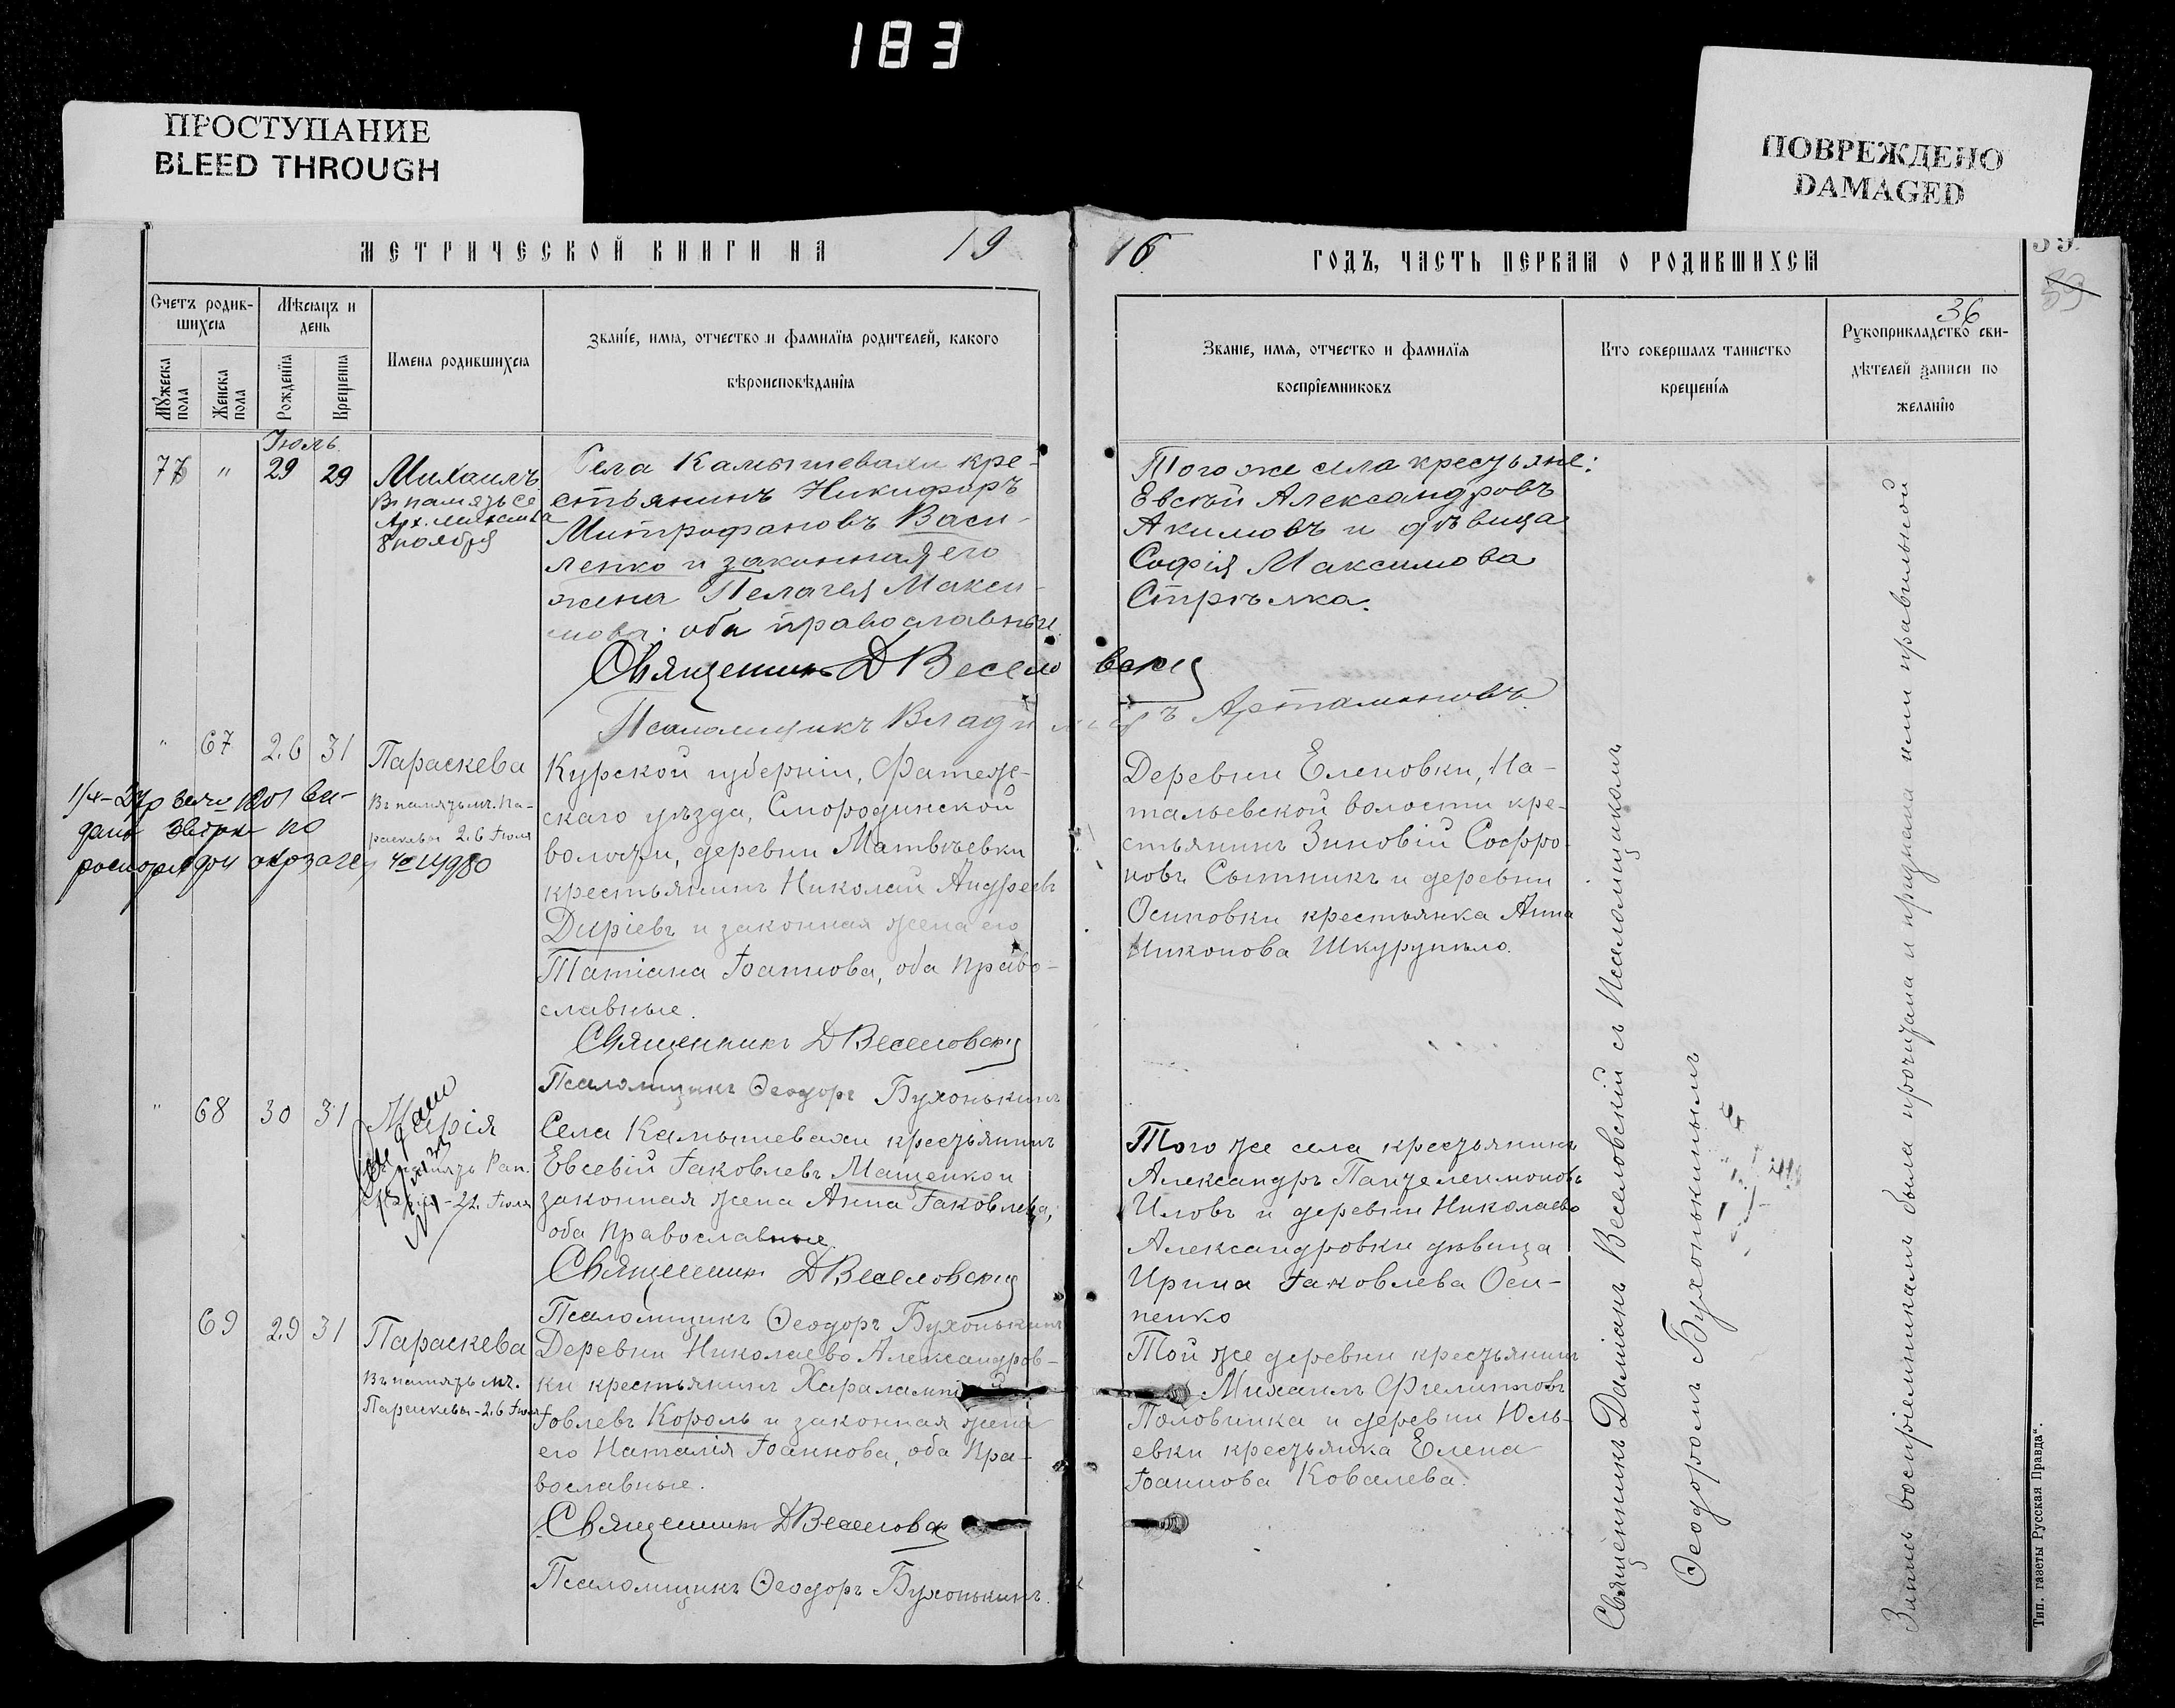 183
ПРОСТУПАНИЕ
BLEED THROUGH
ПОВРЕЖДЕНО
DAMAGED
МЕТРИЧЕСКОЙ КНИГИ НА 19
16 ГОДЪ, ЧАСТЬ ПЕРВАЯ О РОДИВШИХСЯ
39
36
Счетъ родив-
шихся
Мѣсяцъ и
день
Мужеска
пола
Женска
пола
Рожденія
Крещенія
Имена родившихся
Званіе, имя, отчество и фамилія родителей, какого
вѣроисповѣданія
Званіе, имя, отчество и фамилія
воспріемниковъ
Кто совершалъ таинство
крещенія
Рукоприкладство сви-
дѣтелей записи по
желанію
Іюль
77 " 29 29
Михаилъ
Въ память Со
Арх. Михаила
8 ноября
Села Камышевахи кре-
стьянинъ Никифоръ
Митрофановъ Васи-
ленко и законная его
жена Пелагея Макси-
мова: оба православные
Священникъ Д Веселовскій
Псаломщикъ Владиміръ Артамоновъ
Того же села крестьяне:
Евсѣй Александровъ
Акимовъ и дѣвица
Софія Максимова
Стрѣлка.
" 67 26 31
Параскева
Въ память мч. Па-
раскевы 26 Іюля
Курской губерніи, Фатеж-
скаго уѣзда, Смородинской
волости, деревни Матвѣевки
крестьянинъ Николай Андреевъ
Диріевъ и законная жена его
Татіана Іоаннова, оба право-
славные.
Священникъ Д Веселовскій
Псаломщикъ Ѳеодоръ Бухонькинъ
Деревни Еленовки, На-
тальевской волости кре-
стьянинъ Зиновій Софро-
новъ Сытникъ и деревни
Осиповки крестьянка Анна
Никонова Шкурупило.
" 68 30 31
Марія
память Рап.
22 Іюля
Села Камышевахи крестьянинъ
Евсевій Іаковлевъ Мащенко и
законная жена Анна Іаковлева,
оба православные.
Священникъ Д Веселовскій
Псаломщикъ Ѳеодоръ Бухонькинъ
Того же села крестьянинъ
Александръ Пантелеимоновъ
Иловъ и деревни Николаево
Александровки дѣвица
Ирина Іаковлева Оси-
пенко
69 29 31
Параскева
Въ память мч.
Параскевы - 26 Іюля
Деревни Николаево Александров-
ки крестьянинъ Харалампій
Іовлевъ Король и законная жена
его Наталія Іоаннова, оба пра-
вославные.
Священникъ Д Веселовскій
Псаломщикъ Ѳеодоръ Бухонькинъ.
Той же деревни крестьянинъ
Михаилъ Филипповъ
Половинка и деревни Юль-
евки крестьянка Елена
Іоаннова Ковалева.
Священникъ Даміанъ Веселовскій съ Псаломщикомъ
Ѳеодоромъ Бухонькинымъ
Запись воспріемникамъ была прочитана и признана ими правильной
Тип. газеты „Русская Правда“.